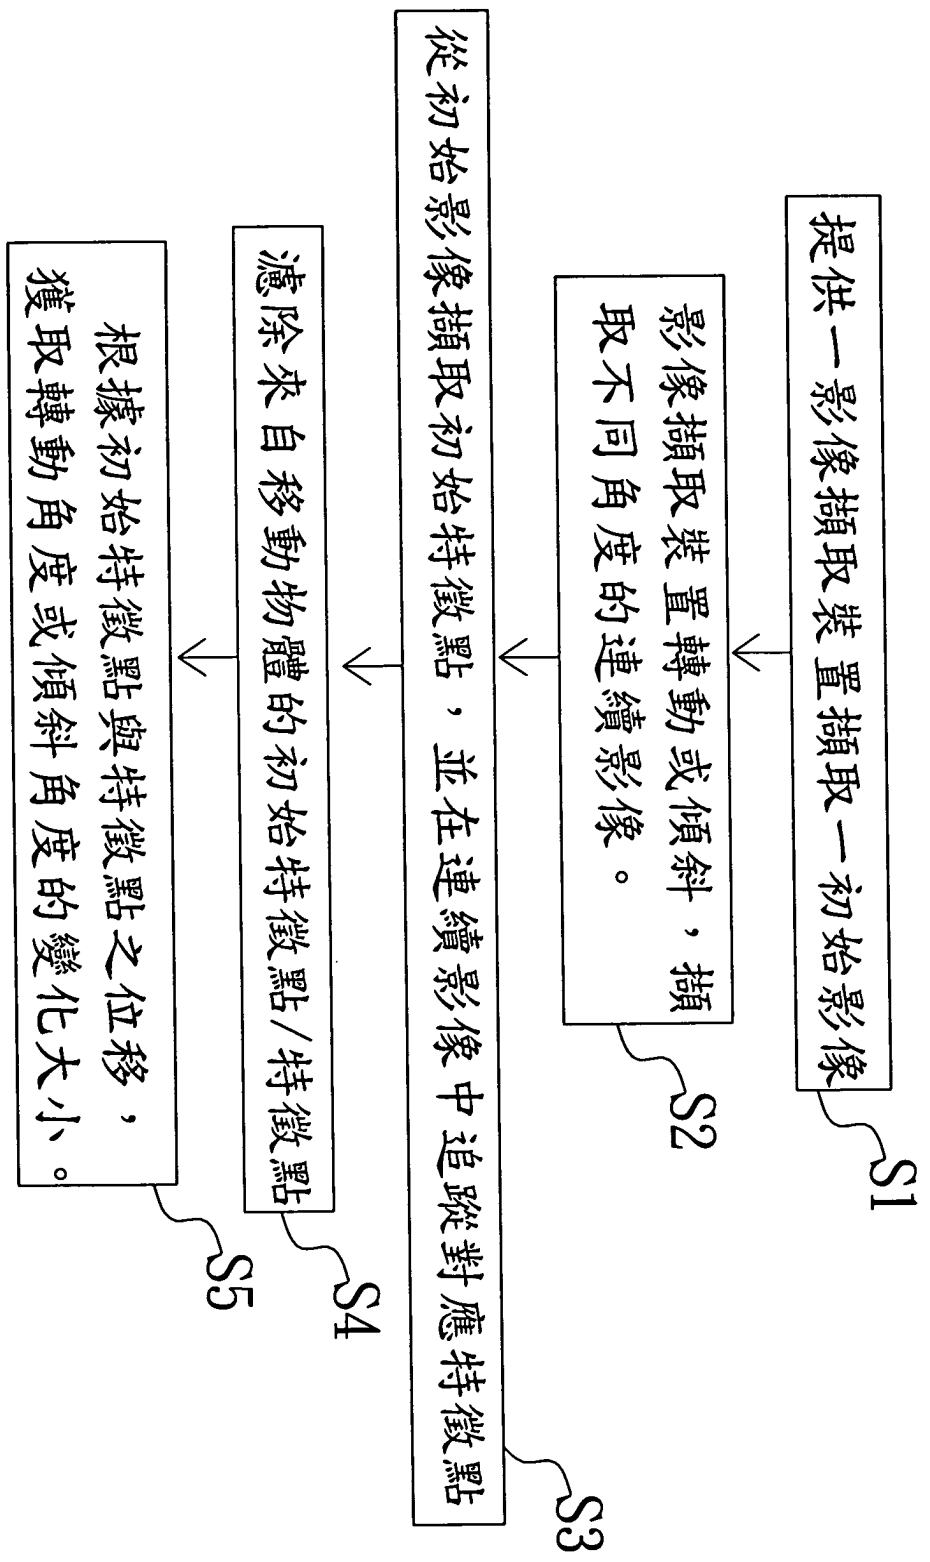 提供一影像擷取裝置擷取一初始影像
S1
影像擷取裝置轉動或傾斜，擷
取不同角度的連續影像。
S2
從初始影像擷取初始特徵點，並在連續影像中追蹤對應特徵點
S3
濾除來自移動物體的初始特徵點/特徵點
S4
根據初始特徵點與特徵點之位移，
獲取轉動角度或傾斜角度的變化大小。
S5